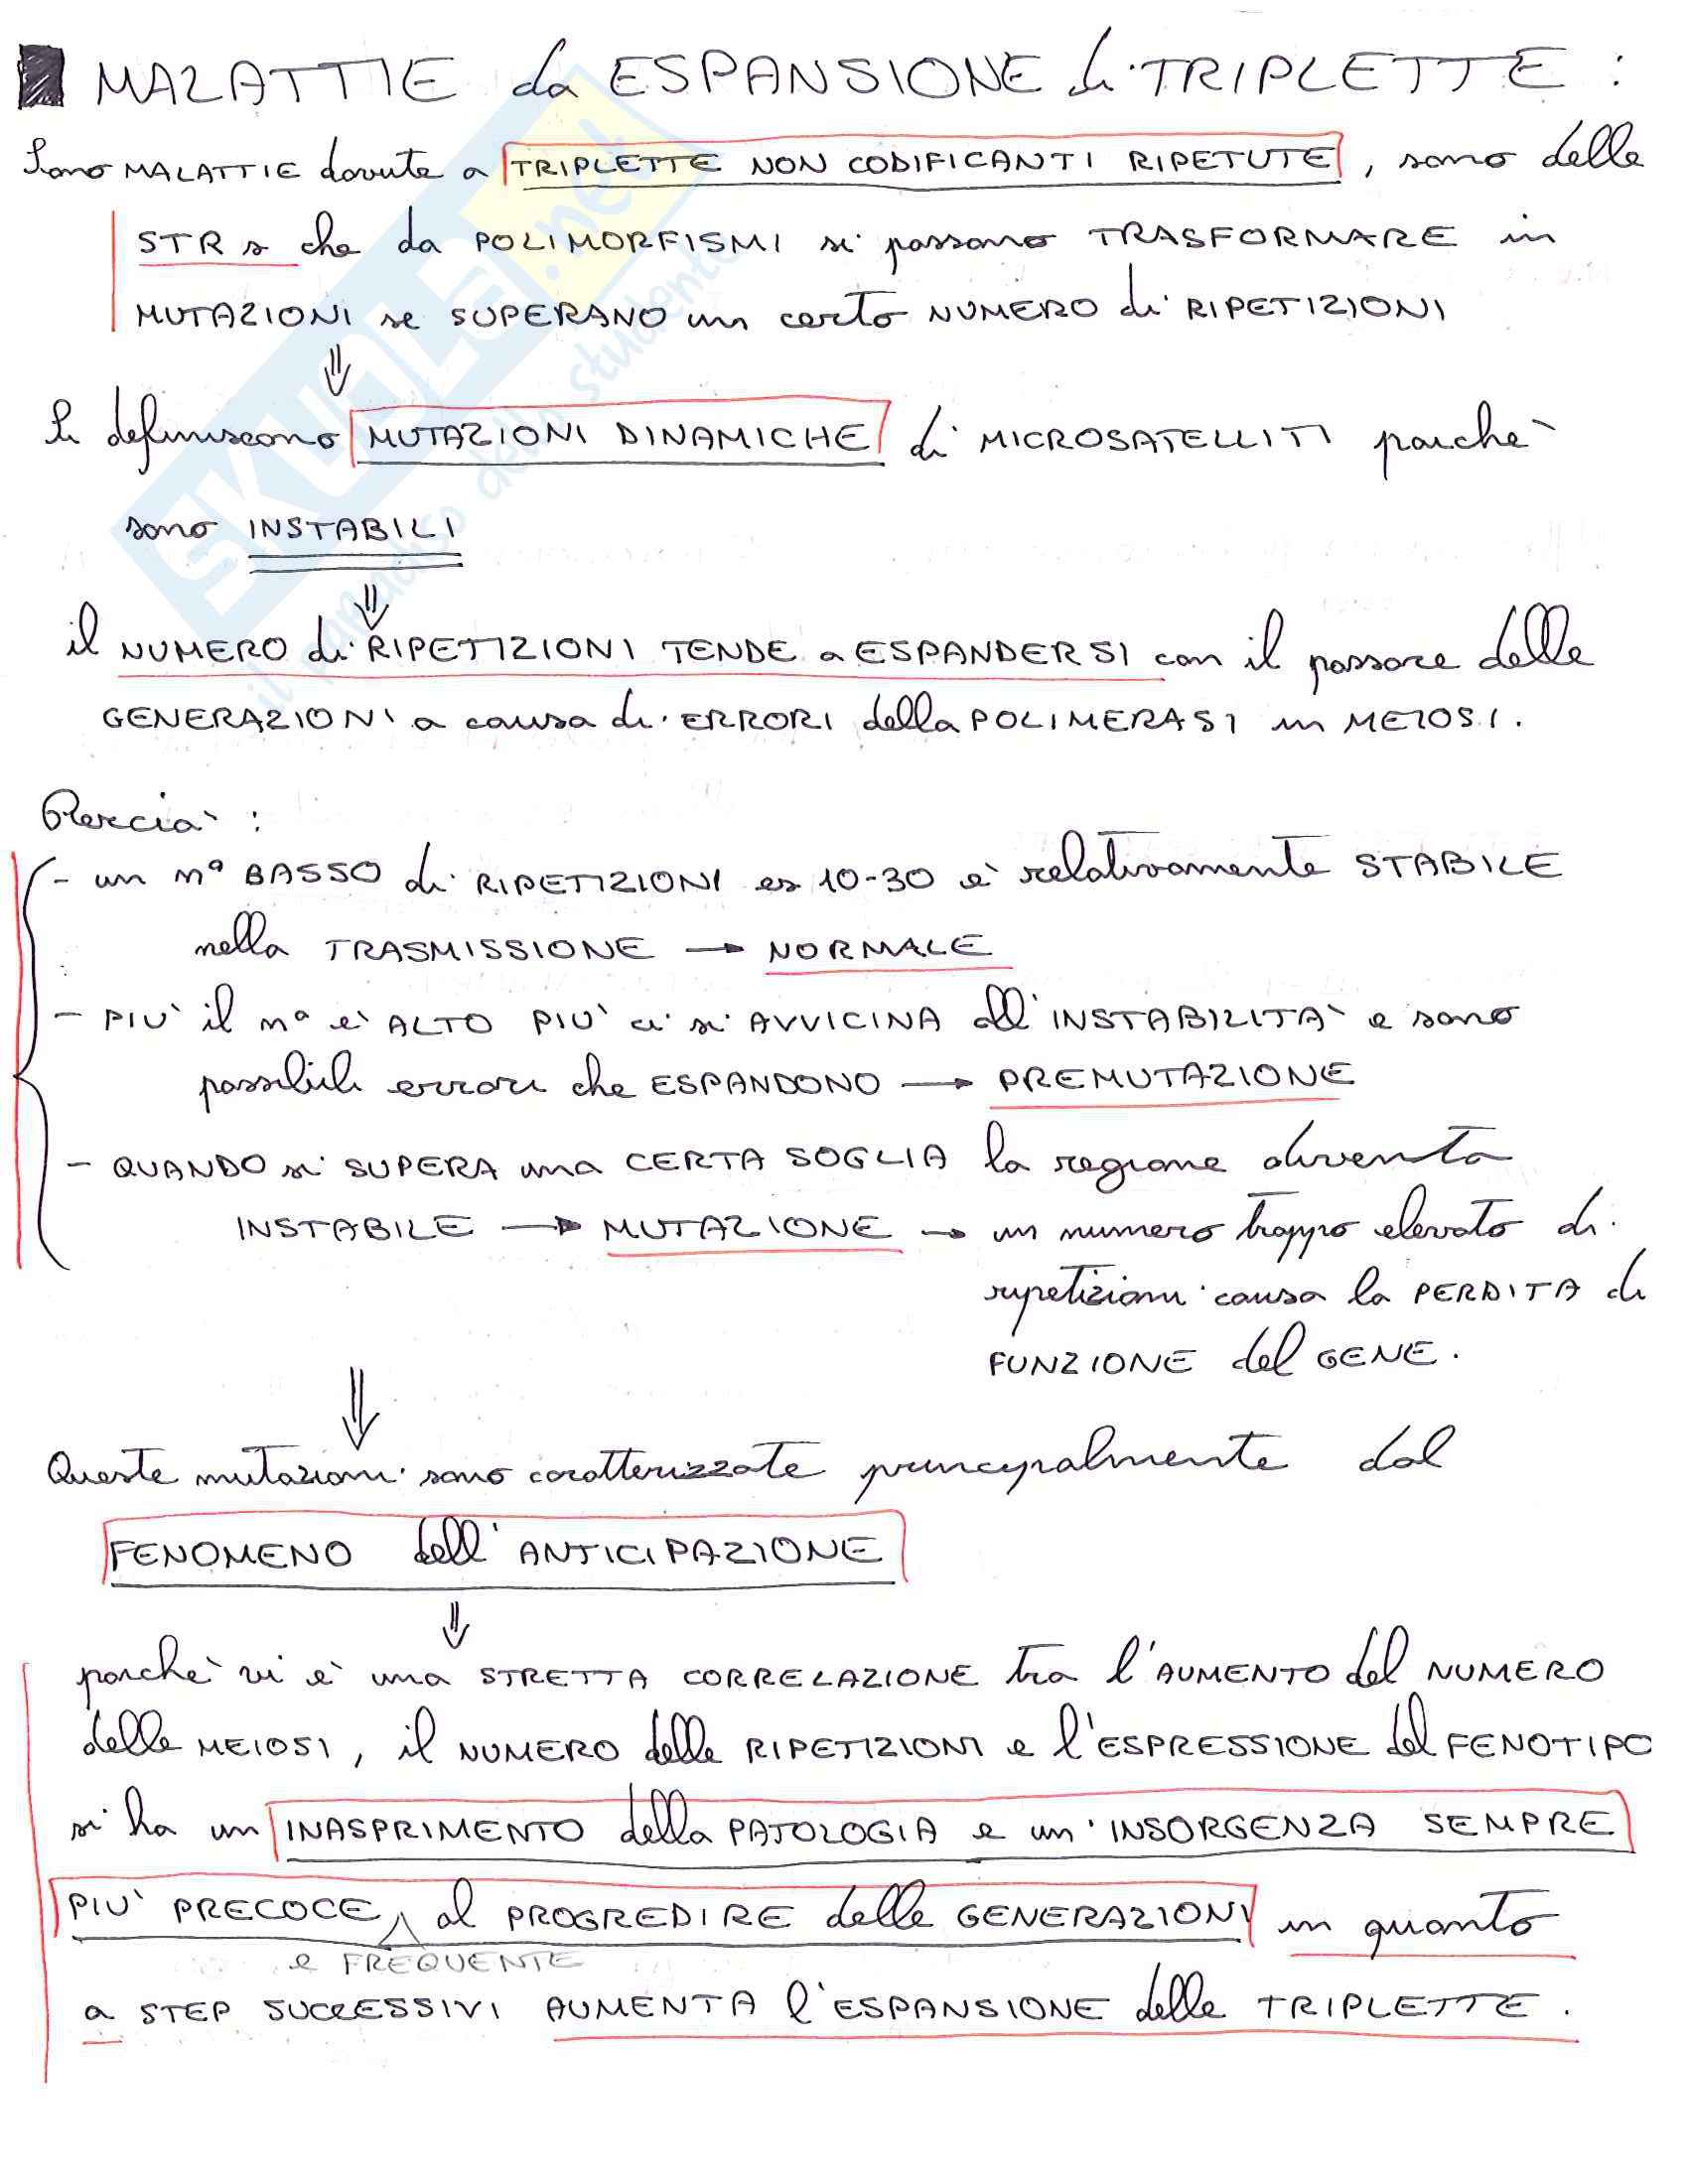 MALATTIE da ESPANSIONE di TRIPLETTE :
Sono MALATTIE dovute a TRIPLETTE NON CODIFICANTI RIPETUTE, sono delle
STRs che da POLIMORFISMI si possono TRASFORMARE in
MUTAZIONI se SUPERANO un certo NUMERO di RIPETIZIONI
⇓
Si definiscono MUTAZIONI DINAMICHE di MICROSATELLITI poiché
sono INSTABILI
⇓
il NUMERO di RIPETIZIONI TENDE a ESPANDERSI con il passare delle
GENERAZIONI a causa di ERRORI della POLIMERASI in MEIOSI.
Perciò :
- un n° BASSO di RIPETIZIONI es 10-30 è relativamente STABILE
nella TRASMISSIONE → NORMALE
- PIÙ il n° è ALTO PIÙ ci si AVVICINA all'INSTABILITÀ e sono
possibili errori che ESPANDONO → PREMUTAZIONE
- QUANDO si SUPERA una CERTA SOGLIA la regione diventa
INSTABILE → MUTAZIONE → un numero troppo elevato di
ripetizioni causa la PERDITA di
FUNZIONE del GENE.
⇓
Queste mutazioni sono caratterizzate principalmente dal
FENOMENO dell'ANTICIPAZIONE
⇓
poiché vi è una STRETTA CORRELAZIONE tra l'AUMENTO del NUMERO
delle MEIOSI, il NUMERO delle RIPETIZIONI e l'ESPRESSIONE del FENOTIPO
si ha un INASPRIMENTO della PATOLOGIA e un'INSORGENZA SEMPRE
PIÙ PRECOCE al PROGREDIRE delle GENERAZIONI in quanto
e FREQUENTE
a STEP SUCCESSIVI AUMENTA l'ESPANSIONE delle TRIPLETTE.
SKUOLA.net
il paradiso dello studente